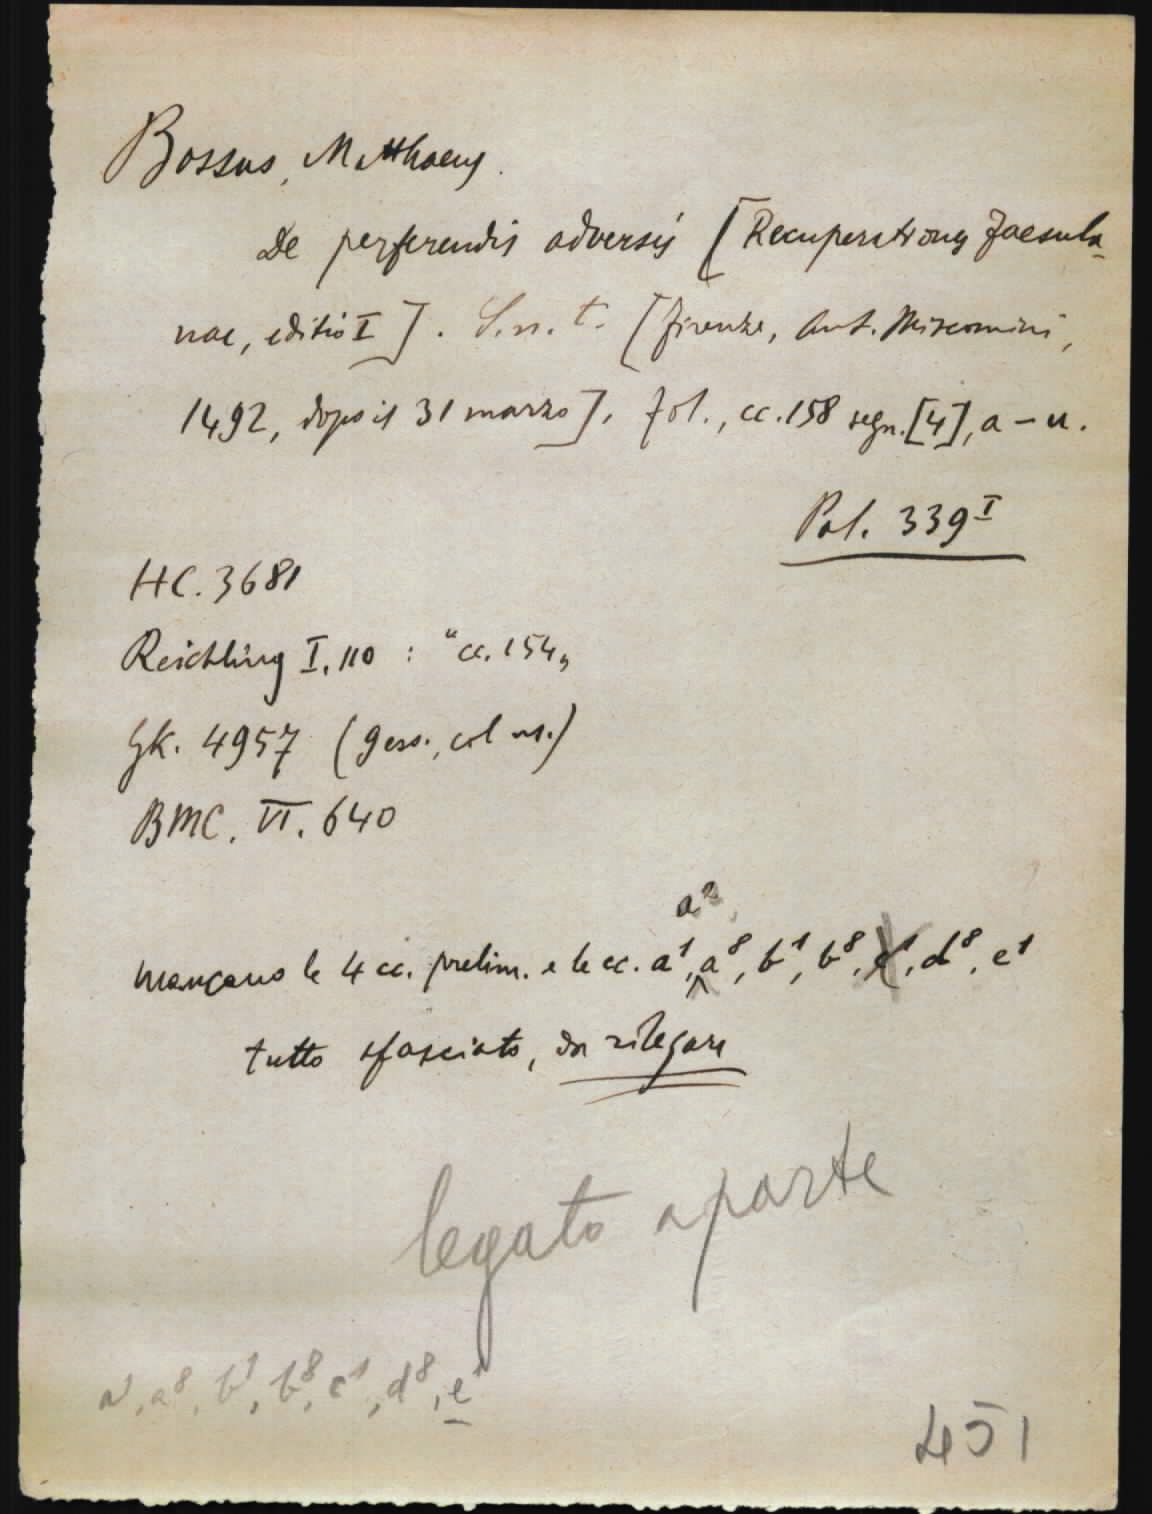 Bossus, Matthaeus.
De perferendis adversis [Recuperationes Faesula-
nae, editio I]. S. n. t. [Firenze, Ant. Miscomini,
1492, dopo il 31 marzo]. fol., cc. 158 segn. [4], a – u.
Pal. 339 I
HC. 3681
Reichling I. 110 : "cc. 154"
GK. 4957 (gew., col us.)
BMC. VI. 640
a²
mancano le 4 cc. prelim. e le cc. a¹, a⁸, b¹, b⁸, c¹, d⁸, e¹
tutto sfasciato, da rilegare
legato a parte
a¹, a⁸, b¹, b⁸, c¹, d⁸, e¹
451